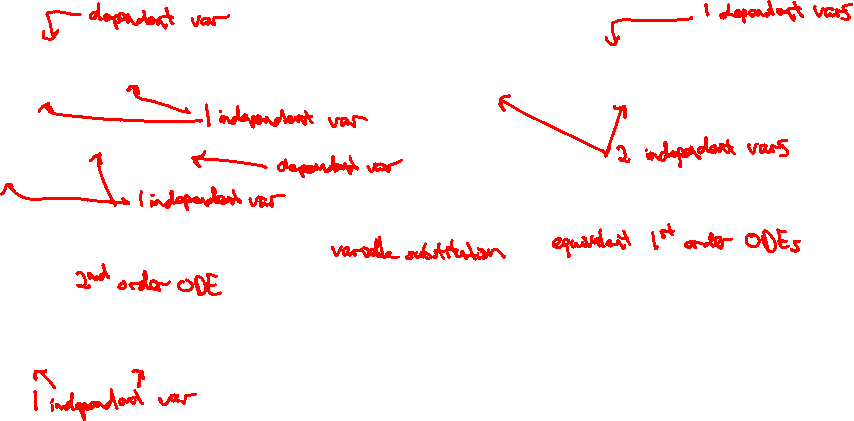 dependent var
1 dependent vars
1 independent var
2 independent vars
dependent var
1 independent var
variable substitution
equivalent 1st order ODEs
2nd order ODE
1 independent var